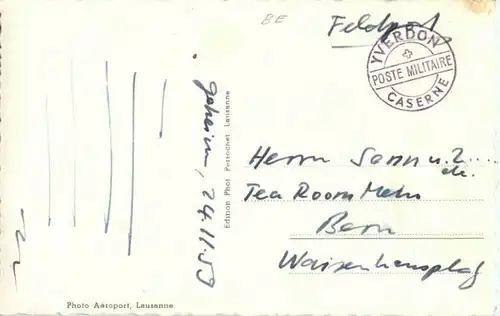 BE
Feldpost
YVERDON
POSTE MILITAIRE
CASERNE
geheim, 24.11.59
Edition Phot Perrochet Lausanne
Herrn
Tea Room
Bern
Waisenhausplatz
Photo Aéroport, Lausanne